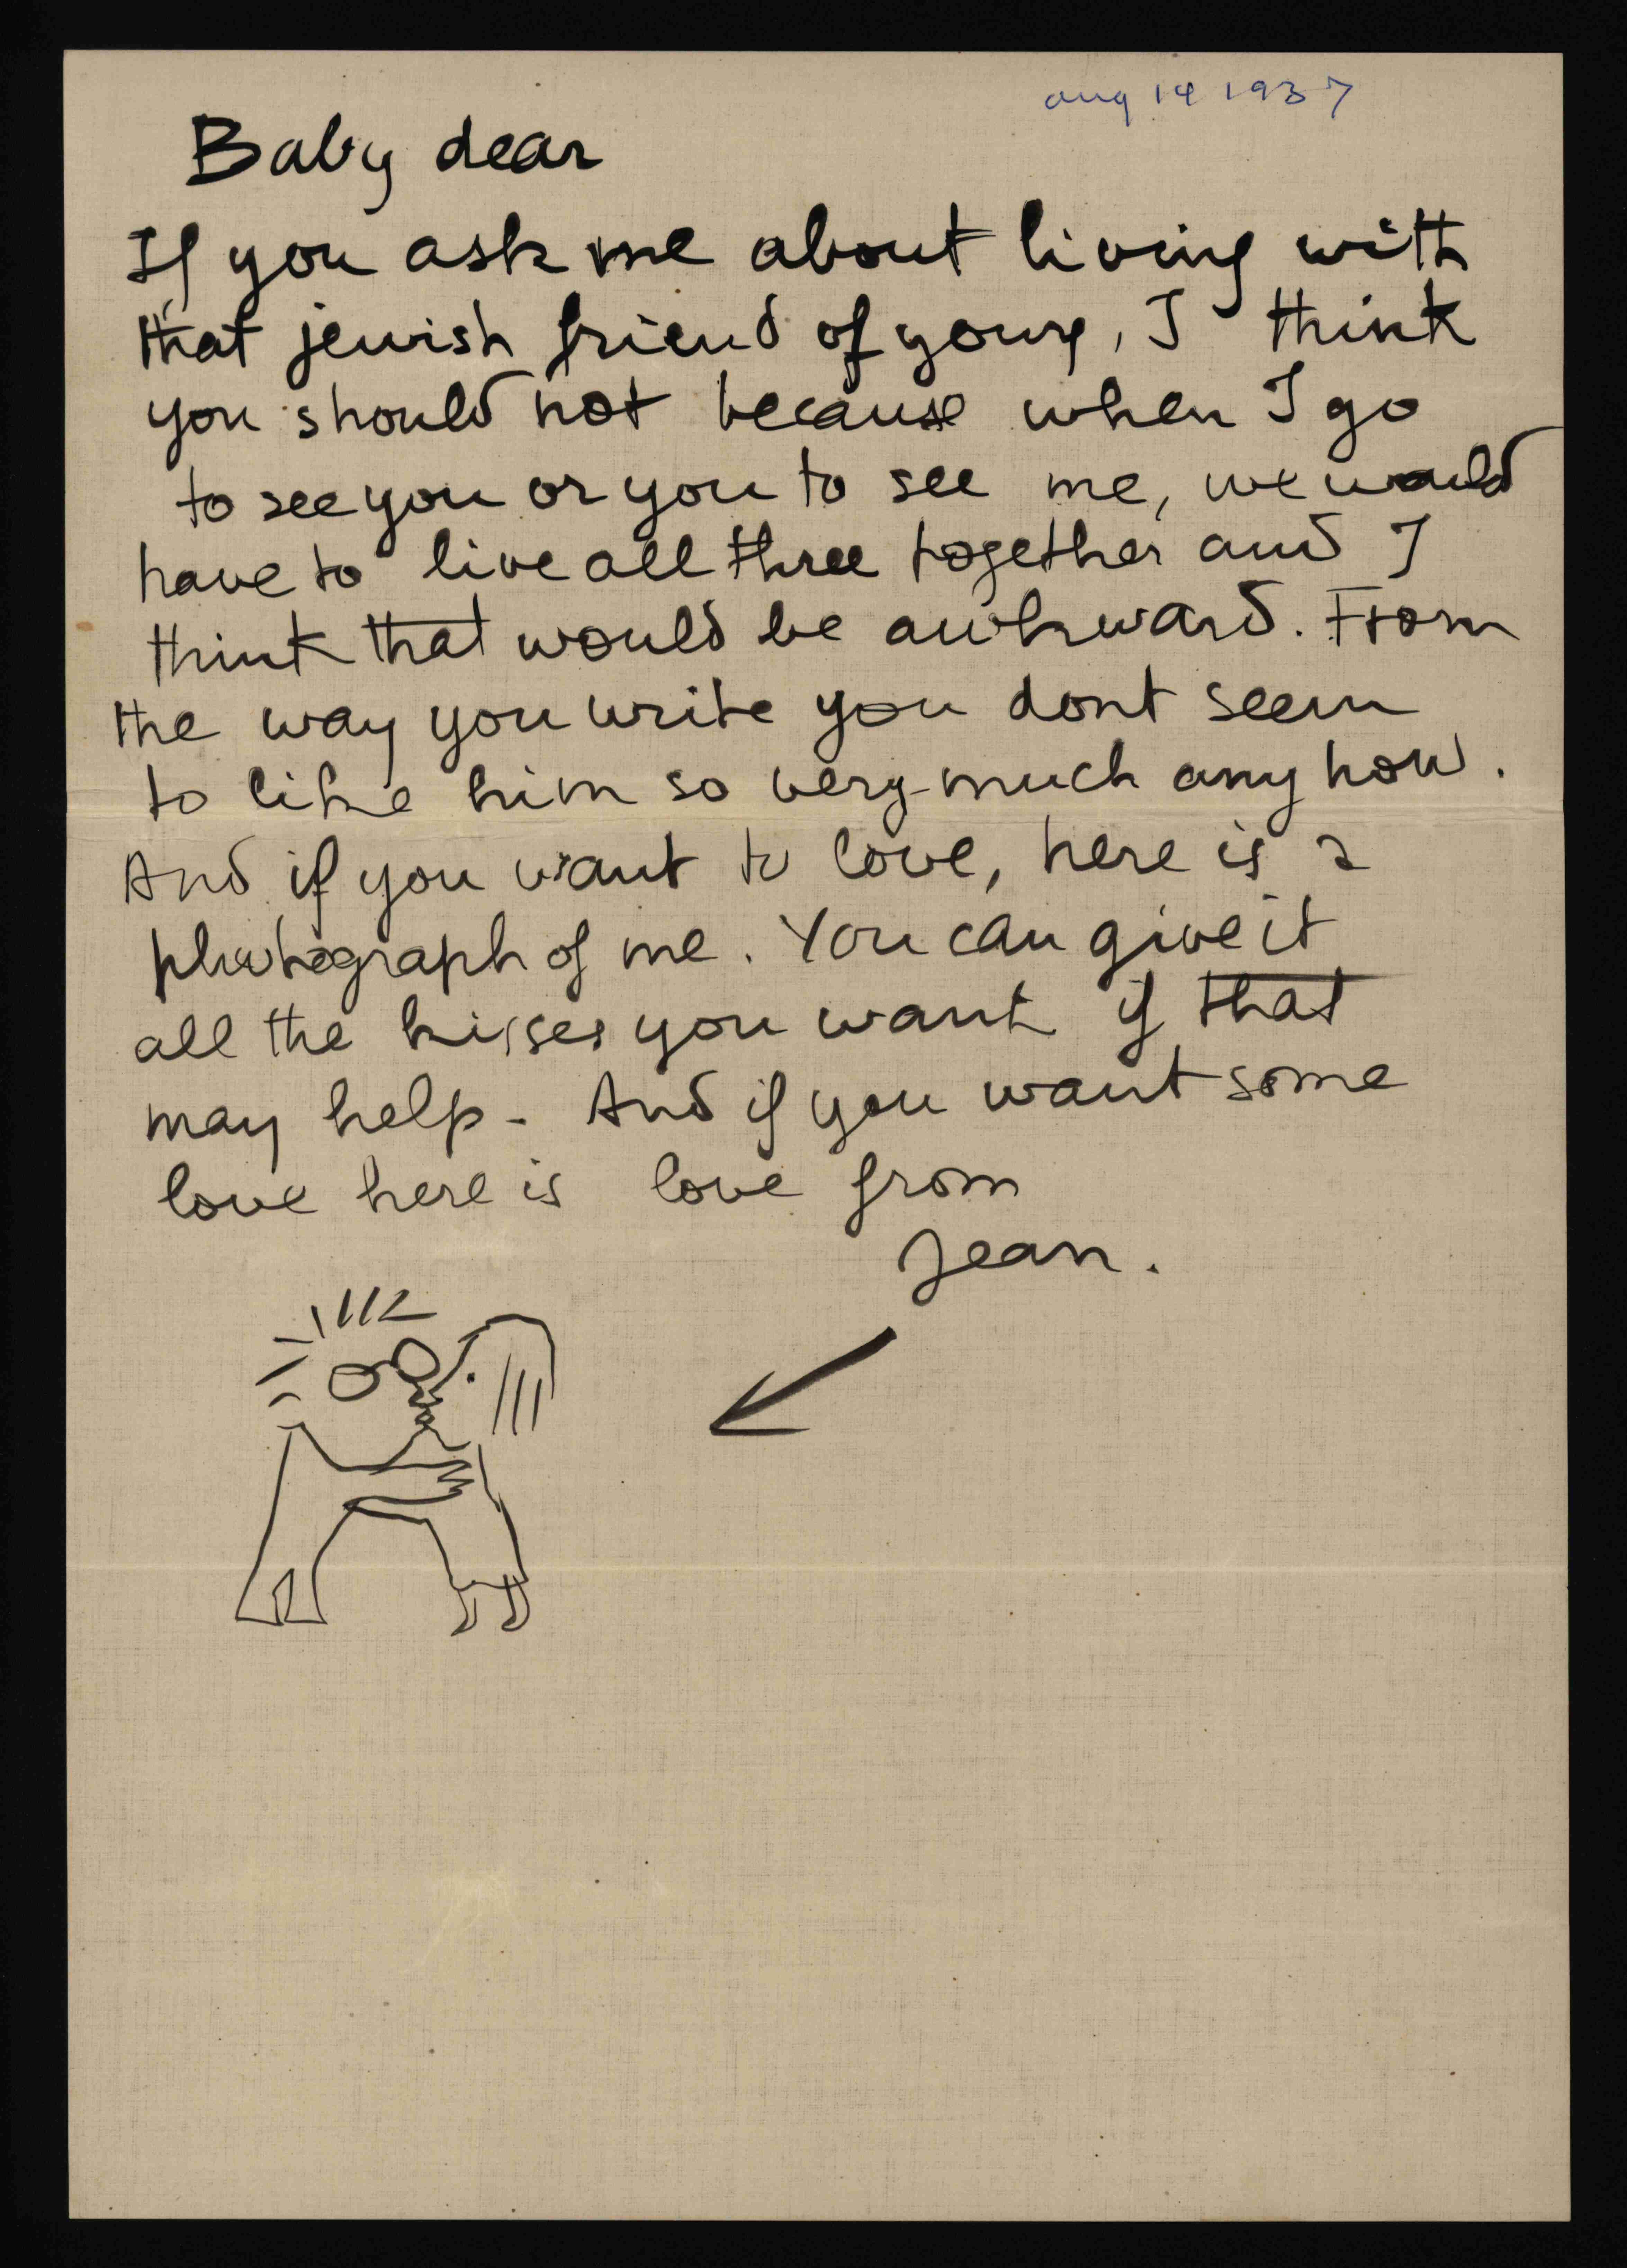 aug 14 1937
Baby dear
If you ask me about living with
that jewish friend of yours, I think
you should not because when I go
to see you or you to see me, we would
have to live all three together and I
think that would be awkward. From
the way you write you dont seem
to like him so very much any how.
And if you want to love, here is a
photograph of me. You can give it
all the kisses you want if that
may help. And if you want some
love here is love from
Jean.